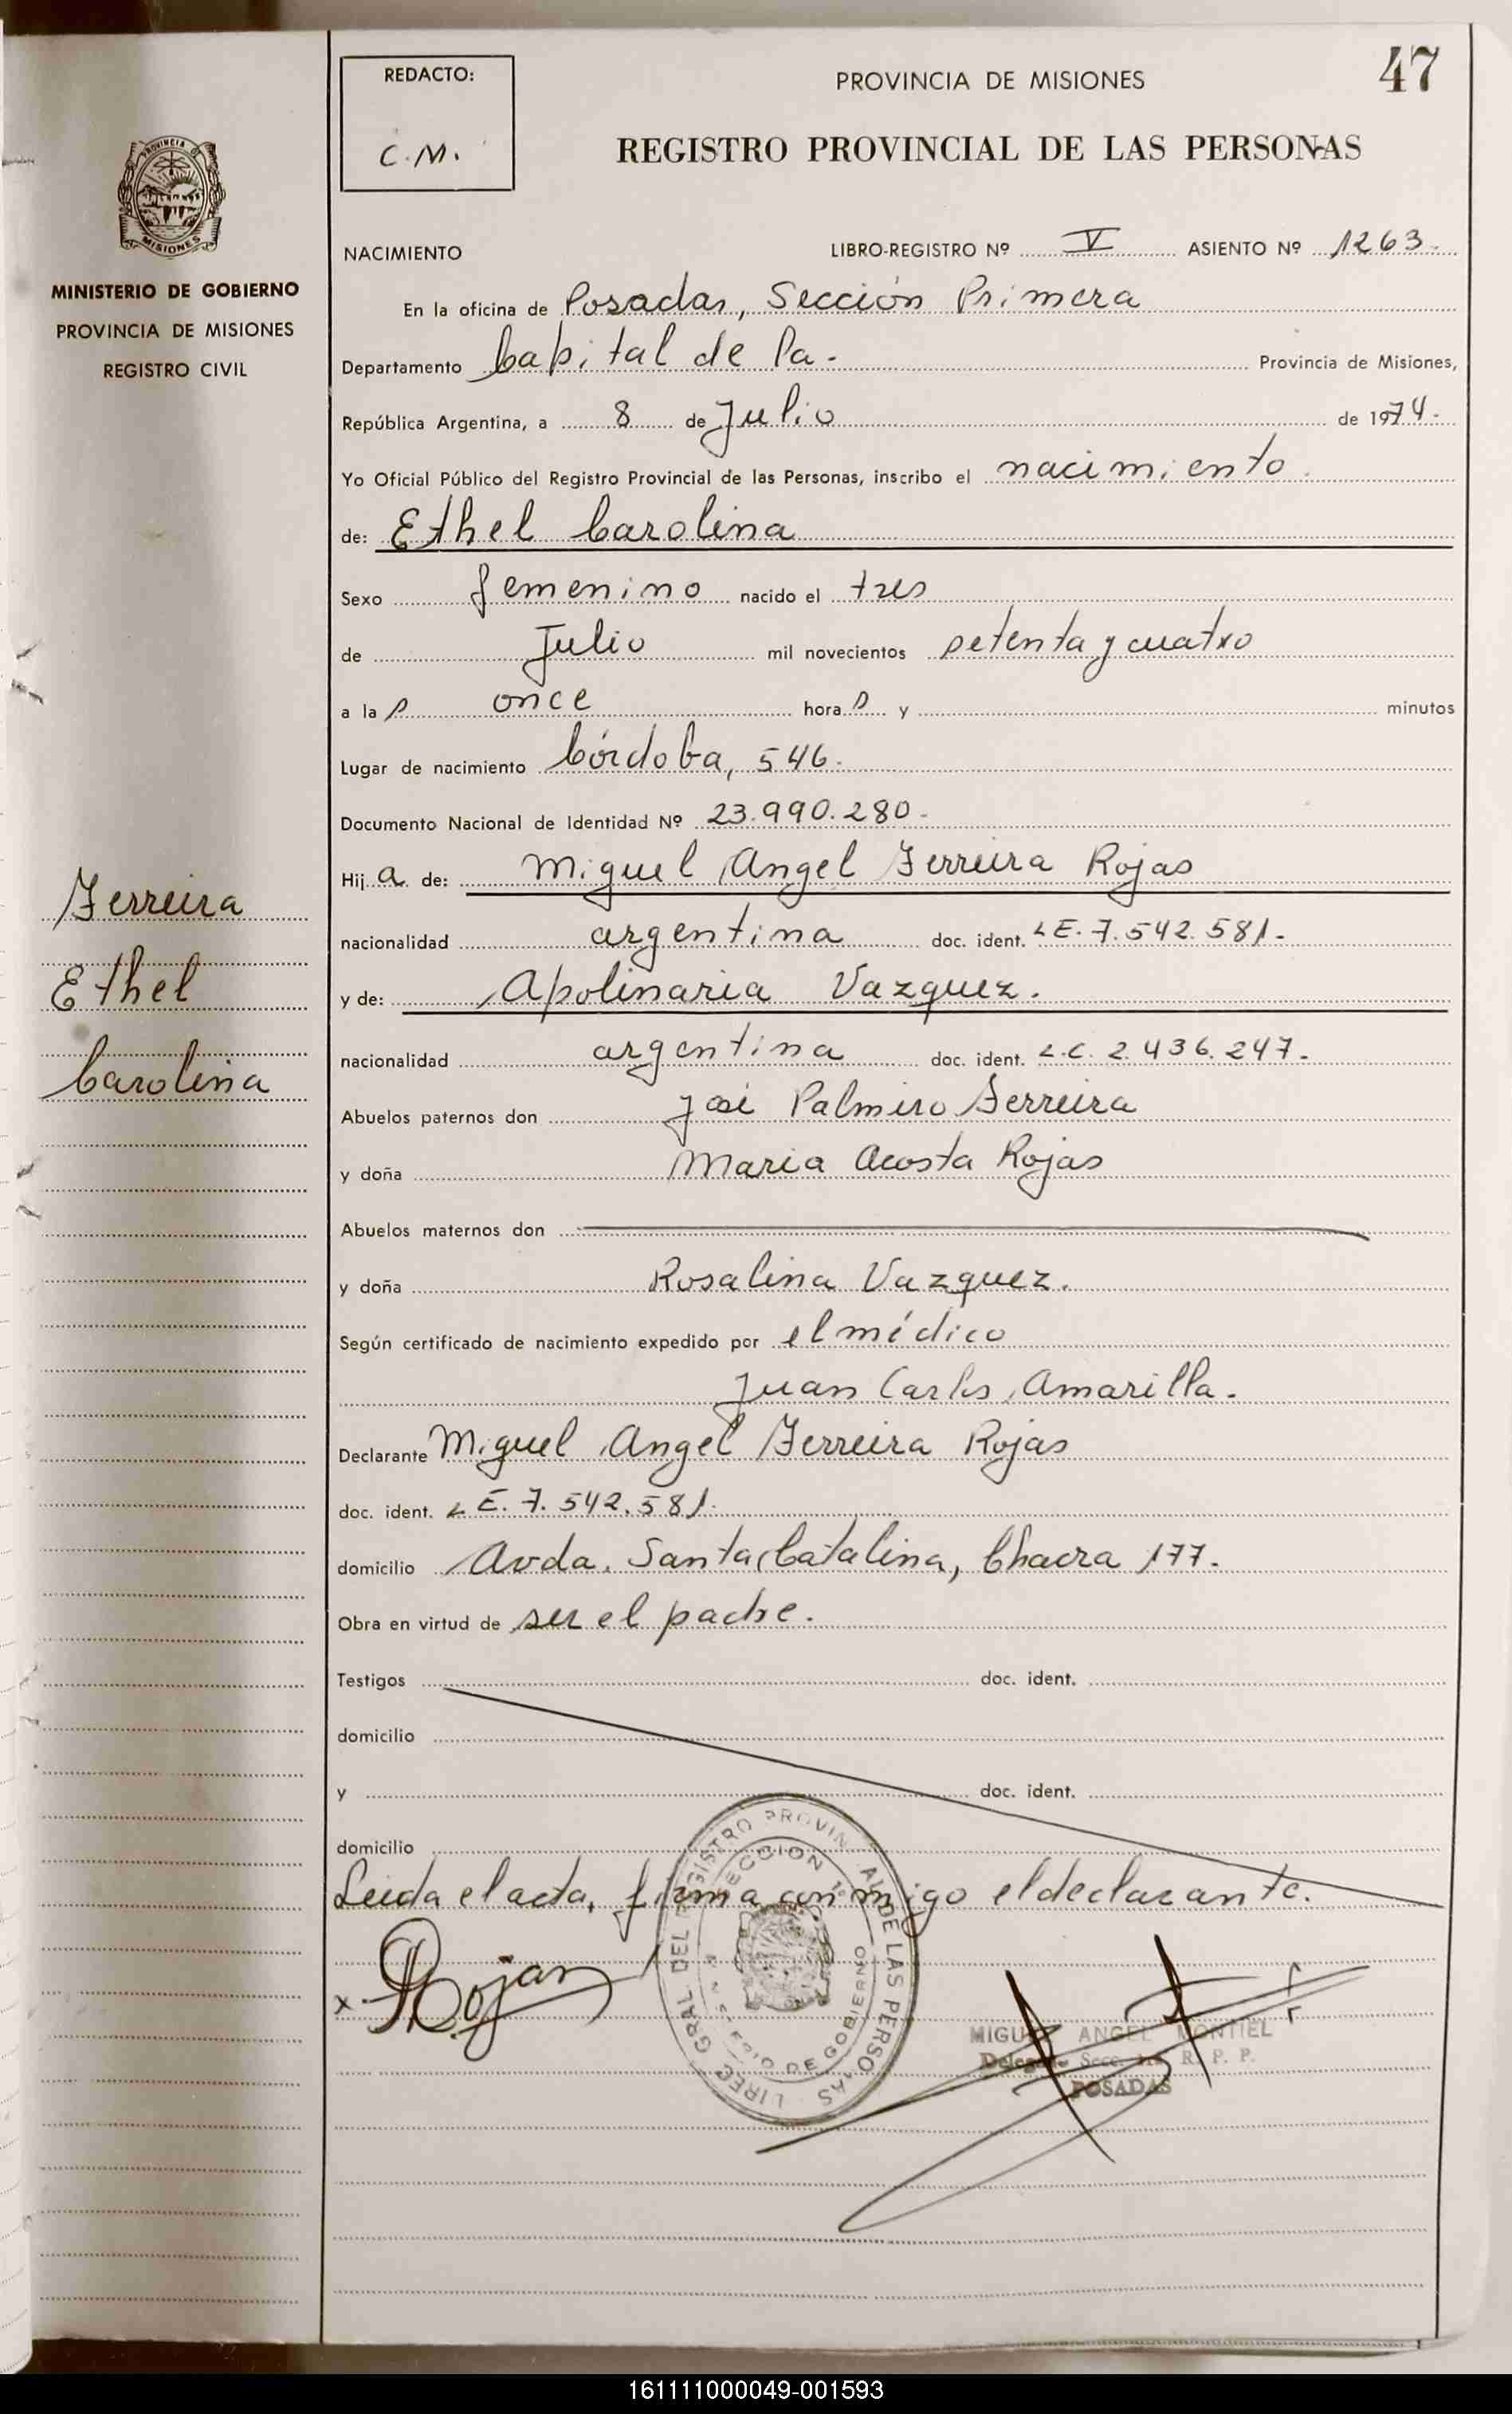 47
REDACTO:
C.M.
PROVINCIA DE MISIONES
REGISTRO PROVINCIAL DE LAS PERSONAS
PROVINCIA DE
MISIONES
MINISTERIO DE GOBIERNO
PROVINCIA DE MISIONES
REGISTRO CIVIL
NACIMIENTO LIBRO-REGISTRO Nº V ASIENTO Nº 1263.
En la oficina de Posadas, Sección Primera
Departamento Capital de la. Provincia de Misiones,
República Argentina, a 8 de Julio de 1974.
Yo Oficial Público del Registro Provincial de las Personas, inscribo el nacimiento.
de: Ethel Carolina
Sexo femenino nacido el tres
de Julio mil novecientos setenta y cuatro
a la s once hora s y minutos
Lugar de nacimiento Córdoba, 546.
Documento Nacional de Identidad Nº 23.990.280.
Hij a de: Miguel Angel Ferreira Rojas
nacionalidad argentina doc. ident. L E. 7.542.581.
y de: Apolinaria Vazquez.
nacionalidad argentina doc. ident. L.C. 2.436.247.
Abuelos paternos don José Palmiro Ferreira
y doña Maria Acosta Rojas
Abuelos maternos don
y doña Rosalina Vazquez.
Según certificado de nacimiento expedido por el médico
Juan Carlos Amarilla.
Declarante Miguel Angel Ferreira Rojas
doc. ident. L E. 7.542.581.
domicilio Avda. Santa Catalina, Chacra 177.
Obra en virtud de ser el padre.
Testigos doc. ident.
domicilio
y doc. ident.
domicilio
Leida el acta, firma conmigo el declarante.
Ferreira
Ethel
Carolina
x Rojas
MIGUEL ANGEL MONTIEL
Delegado Secc. 1ra R. P. P.
POSADAS
161111000049-001593